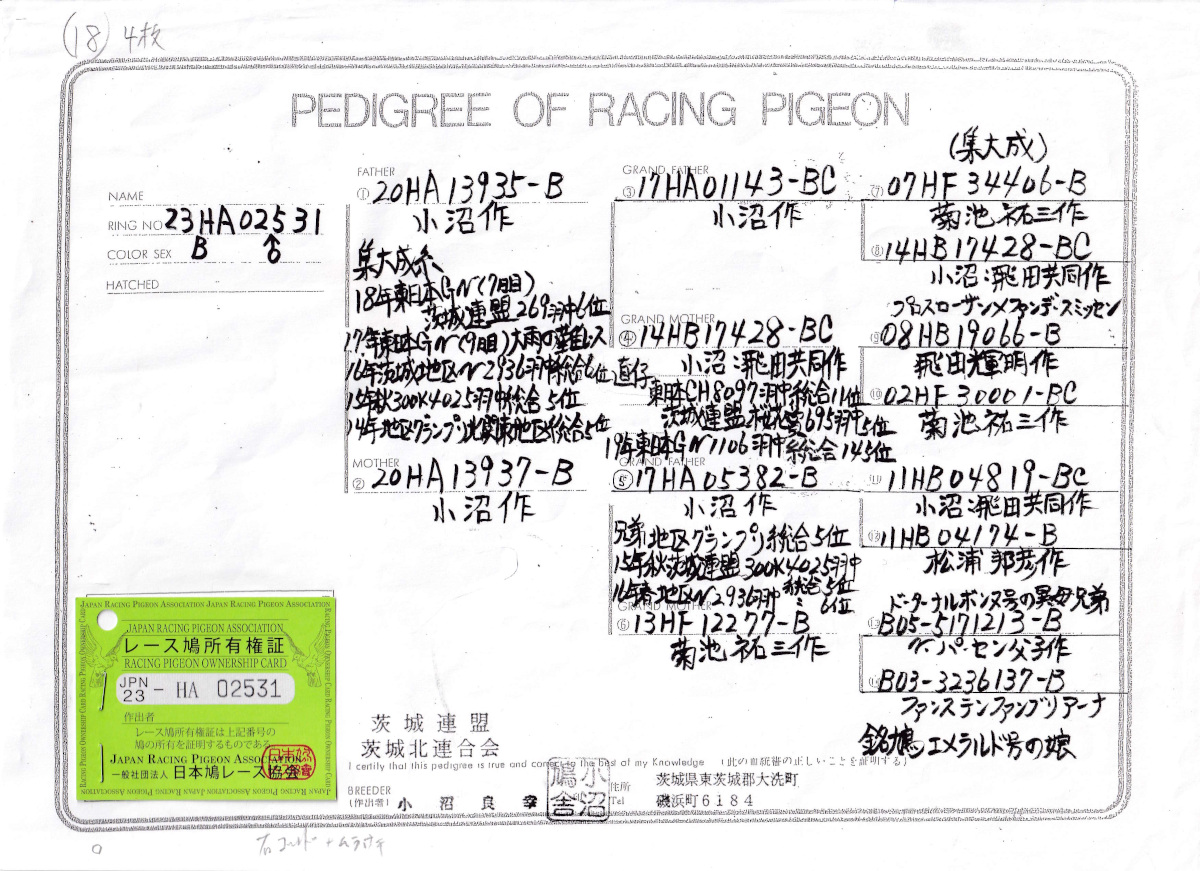 (18) 4枚
PEDIGREE OF RACING PIGEON
NAME
RING NO 23HA02531
COLOR SEX B ♂
HATCHED
FATHER
① 20HA13935-B
小沼作
集大成系
18年東日本GN(7日目)
茨城連盟269羽中6位
17年東日本GN(9日目)大雨の難レース
16年茨城地区N2936羽中総合6位
15年秋300K4025羽中総合5位
14年地区グランプリ北関東地区総合5位
MOTHER
② 20HA13937-B
小沼作
GRAND FATHER
③ 17HA01143-BC
小沼作
GRAND MOTHER
④ 14HB17428-BC
小沼:飛田共同作
直仔
東日本CH8097羽中総合11位
茨城連盟桜花賞695羽中5位
19年東日本GN1106羽中総合145位
GRAND FATHER
⑤ 17HA05382-B
小沼作
兄弟地区グランプリ総合5位
15年秋茨城連盟300K4025羽中総合5位
16年春地区N2936羽中〃6位
GRAND MOTHER
⑥ 13HF12277-B
菊池祐三作
(集大成)
⑦ 07HF34406-B
菊池祐三作
⑧ 14HB17428-BC
小沼:飛田共同作
プロスローザン×ファンデスミッセン
⑨ 08HB19066-B
飛田輝明作
⑩ 02HF30001-BC
菊池祐三作
⑪ 11HB04819-BC
小沼:飛田共同作
⑫ 11HB04174-B
松浦邦彦作
ドーターナルボンヌ号の異母兄弟
⑬ B05-5171213-B
ケーパーセン父子作
⑭ B03-3236137-B
ファンステンファンブリアーナ
銘鳩エメラルド号の娘
JAPAN RACING PIGEON ASSOCIATION JAPAN RACING PIGEON ASSOCIATION
JAPAN RACING PIGEON ASSOCIATION
レース鳩所有権証
RACING PIGEON OWNERSHIP CARD
JPN 23 - HA 02531
作出者
レース鳩所有権証は上記番号の
鳩の所有を証明するものである
JAPAN RACING PIGEON ASSOCIATION
一般社団法人 日本鳩レース協会
茨城連盟
茨城北連合会
I certify that this pedigree is true and correct to the best of my Knowledge (此の血統書の正しいことを証明する)
BREEDER
(作出者) 小沼良幸
小沼鳩舎
住所
Tel
茨城県東茨城郡大洗町
磯浜町6184